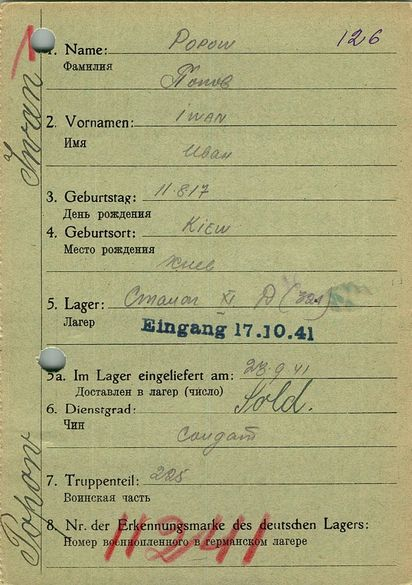 126
1. Name: POPOW
Фамилия
Попов
2. Vornamen: IWAN
Имя
Иван
3. Geburtstag: 11.8.17
День рождения
4. Geburtsort: KIEW
Место рождения
Киев
5. Lager: Сталаг XI D (321)
Лагер
Eingang 17.10.41
5a. Im Lager eingeliefert am: 28.9.41
Доставлен в лагер (число)
6. Dienstgrad: Sold.
Чин
Солдат
7. Truppenteil: 225
Воинская часть
8. Nr. der Erkennungsmarke des deutschen Lagers:
Номер военнопленного в германском лагере
11241
Popow Iwan